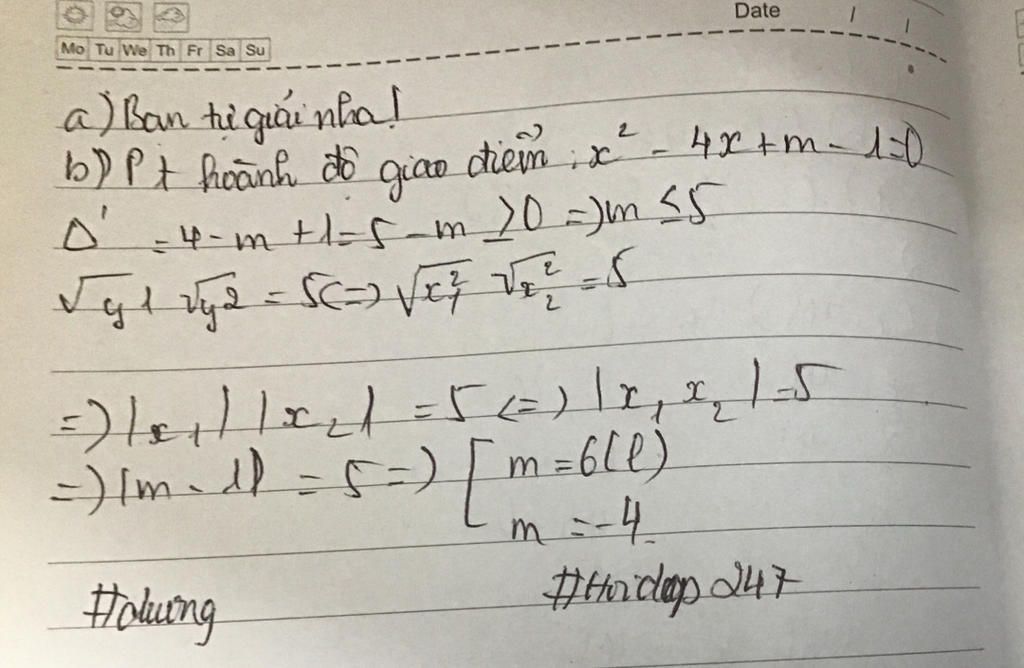 Date / /
Mo Tu We Th Fr Sa Su
a) Bạn tự giải nha!
b) Pt hoành độ giao điểm: x² - 4x + m - 1 = 0
Δ' = 4 - m + 1 = 5 - m ≥ 0 => m ≤ 5
√y1 √y2 = 5 <=> √x₁² √x₂² = 5
=> |x₁| |x₂| = 5 <=> |x₁ x₂| = 5
=> |m - 1| = 5 => [ m = 6 (l)
m = -4
#Hoidap247